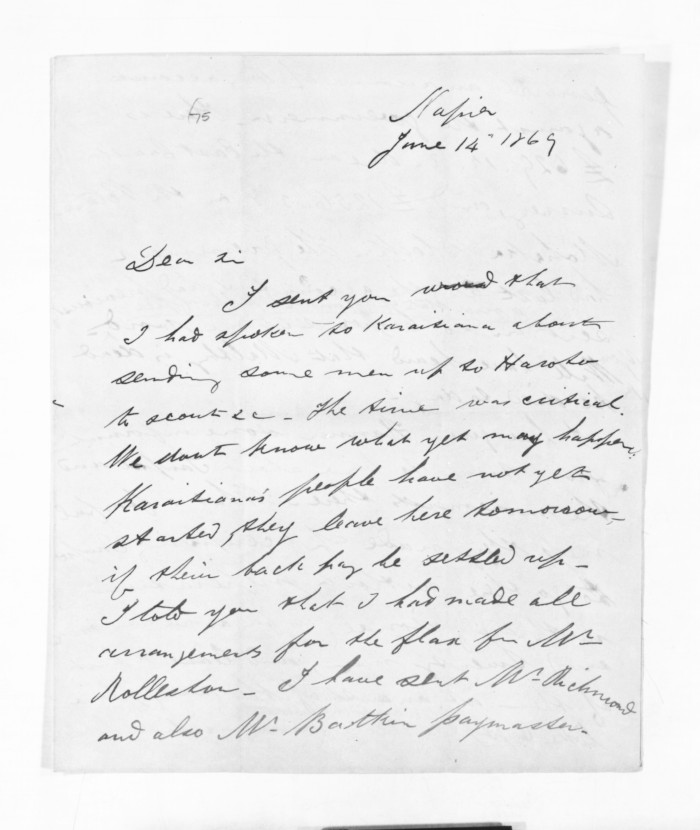 Napier
June 14th 1869
Dear Sir
I sent you word that
I had spoken to Karaitiana about
sending some men up to Haroto
to scout &c - The time was critical.
We dont know what yet may happen.
Karaitiana's people have not yet
started, they leave here tomorrow -
if their back pay be settled up -
I told you that I had made all
arrangements for the flax for Mr
Rolleston - I have sent Mr Richmond
and also Mr Batkin paymaster -